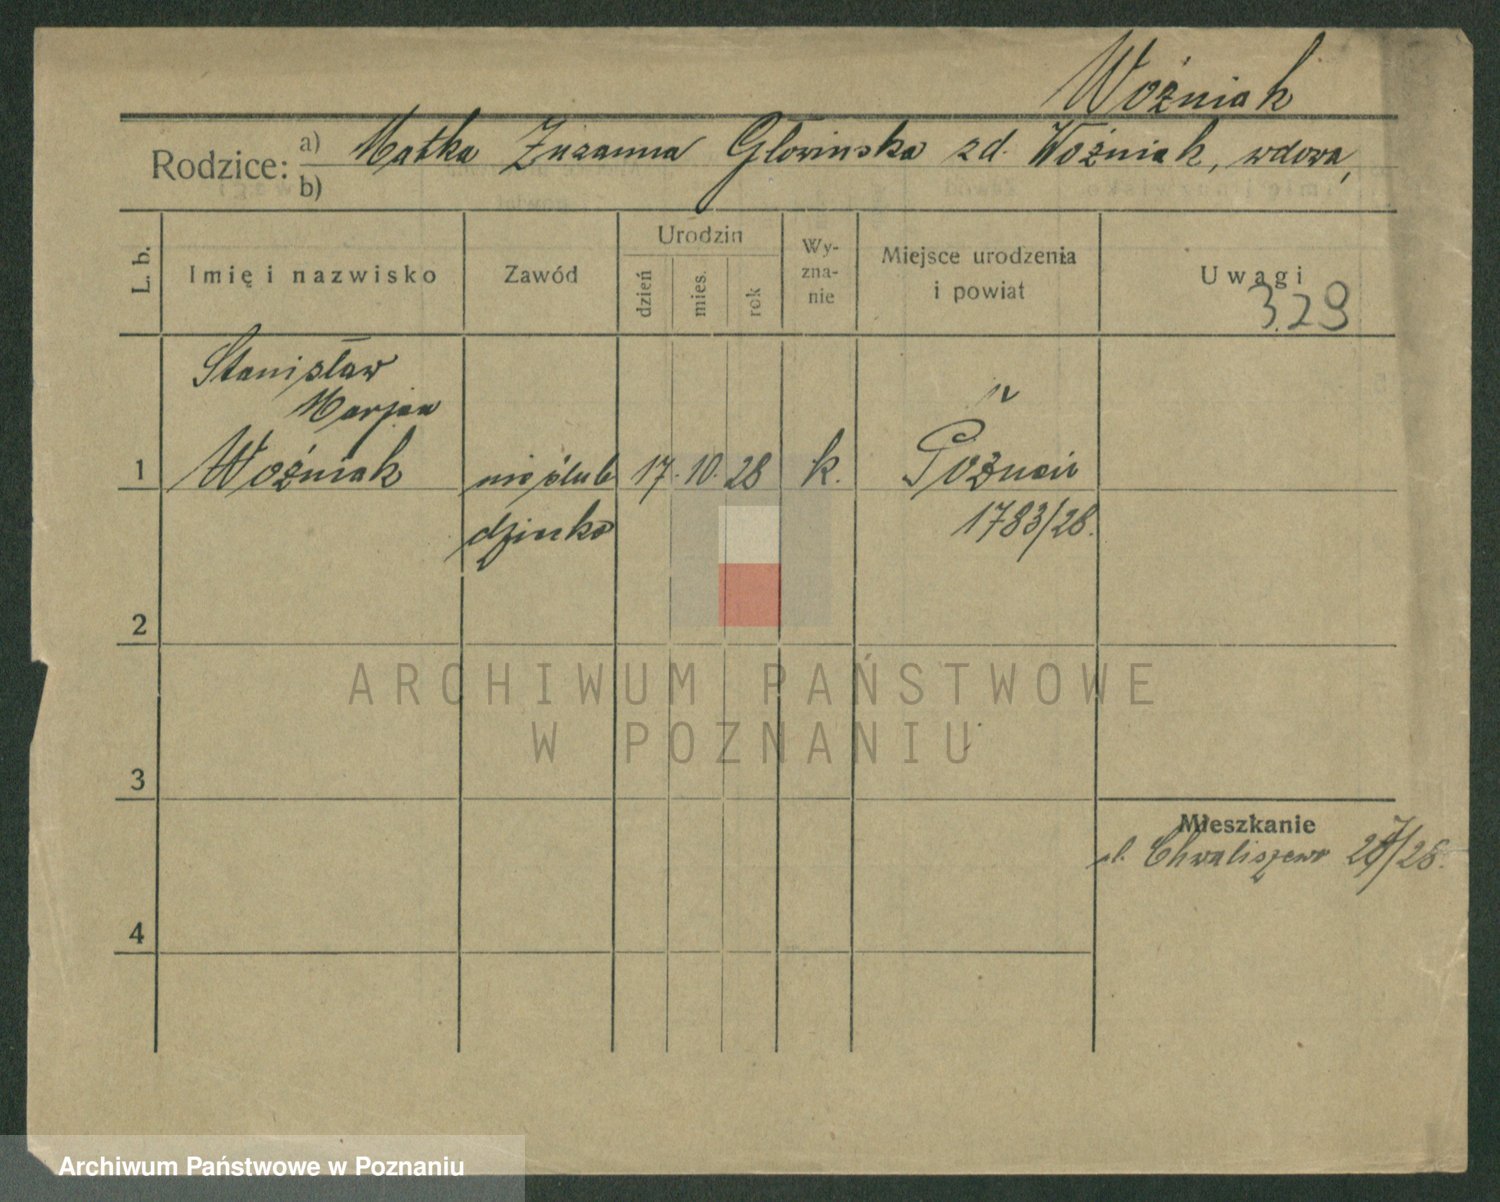 Woźniak
Rodzice: a) Matka Zuzanna Głowinska zd. Woźniak, wdowa,
b)
L. b. Imię i nazwisko Zawód Urodzin dzień mies. rok Wy-zna-nie Miejsce urodzenia i powiat Uwagi
329
Stanisław
Marjan
1 Woźniak nieślub 17. 10. 28 k. Poznań
dziecko 1783/28.
2
ARCHIWUM PAŃSTWOWE
W POZNANIU
3
Mieszkanie
ul. Chwaliszewo /28.
4
Archiwum Państwowe w Poznaniu